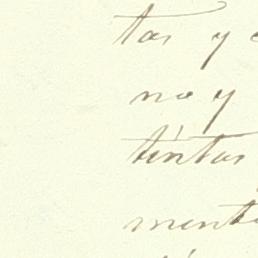 tas y
no y
tintas
ment